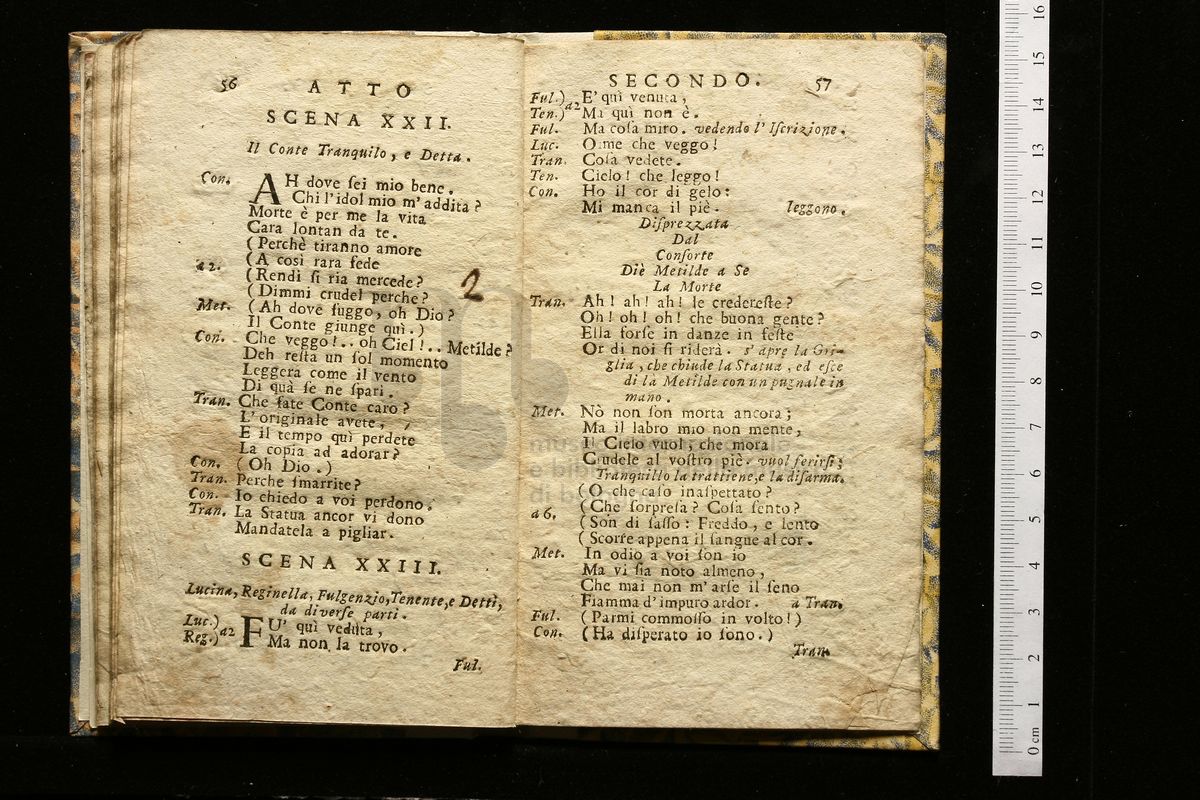 56 ATTO
SCENA XXII.
Il Conte Tranquilo, e Detta.
Con. AH dove ſei mio bene.
Chi l'idol mio m'addita?
Morte è per me la vita
Cara lontan da te.
(Perchè tiranno amore
a 2. (A così rara fede
(Rendi ſi ria mercede?
(Dimmi crudel perche?
2
Met. (Ah dove fuggo, oh Dio?
Il Conte giunge quì.)
Con. Che veggo!.. oh Ciel!.. Metilde?
Deh reſta un ſol momento
Leggera come il vento
Di quà ſe ne ſpari.
Tran. Che fate Conte caro?
L'originale avete,
E il tempo quì perdete
La copia ad adorar?
Con. (Oh Dio.)
Tran. Perche ſmarrite?
Con. Io chiedo a voi perdono.
Tran. La Statua ancor vi dono
Mandatela a pigliar.
SCENA XXIII.
Lucina, Reginella, Fulgenzio, Tenente, e Detti,
da diverſe parti.
Luc.) a2 FU' quì veduta,
Reg.) Ma non la trovo.
Ful.
SECONDO. 57
Ful.) a2 E' quì venuta,
Ten.) Ma quì non è.
Ful. Ma coſa miro. vedendo l'Iſcrizione.
Luc. O me che veggo!
Tran. Coſa vedete.
Ten. Cielo! che leggo!
Con. Ho il cor di gelo:
Mi manca il piè. leggono.
Diſprezzata
Dal
Conſorte
Diè Metilde a Se
La Morte
Tran. Ah! ah! ah! le credereſte?
Oh! oh! oh! che buona gente?
Ella forſe in danze in feſte
Or di noi ſi riderà. s'apre la Gri-
glia, che chiude la Statua, ed eſce
di là Metilde con un pugnale in
mano.
Met. Nò non ſon morta ancora;
Ma il labro mio non mente,
Il Cielo vuol, che mora
Crudele al voſtro piè. vuol ferirſi;
Tranquillo la trattiene, e la diſarma.
(O che caſo inaſpettato?
(Che ſorpreſa? Coſa ſento?
a 6. (Son di ſaſſo: Freddo, e lento
(Scorre appena il ſangue al cor.
Met. In odio a voi ſon io
Ma vi ſia noto almeno,
Che mai non m'arſe il ſeno
Fiamma d'impuro ardor. a Tran.
Ful. (Parmi commoſſo in volto!)
Con. (Ha diſperato io ſono.)
Tran.
0 cm 1 2 3 4 5 6 7 8 9 10 11 12 13 14 15 16